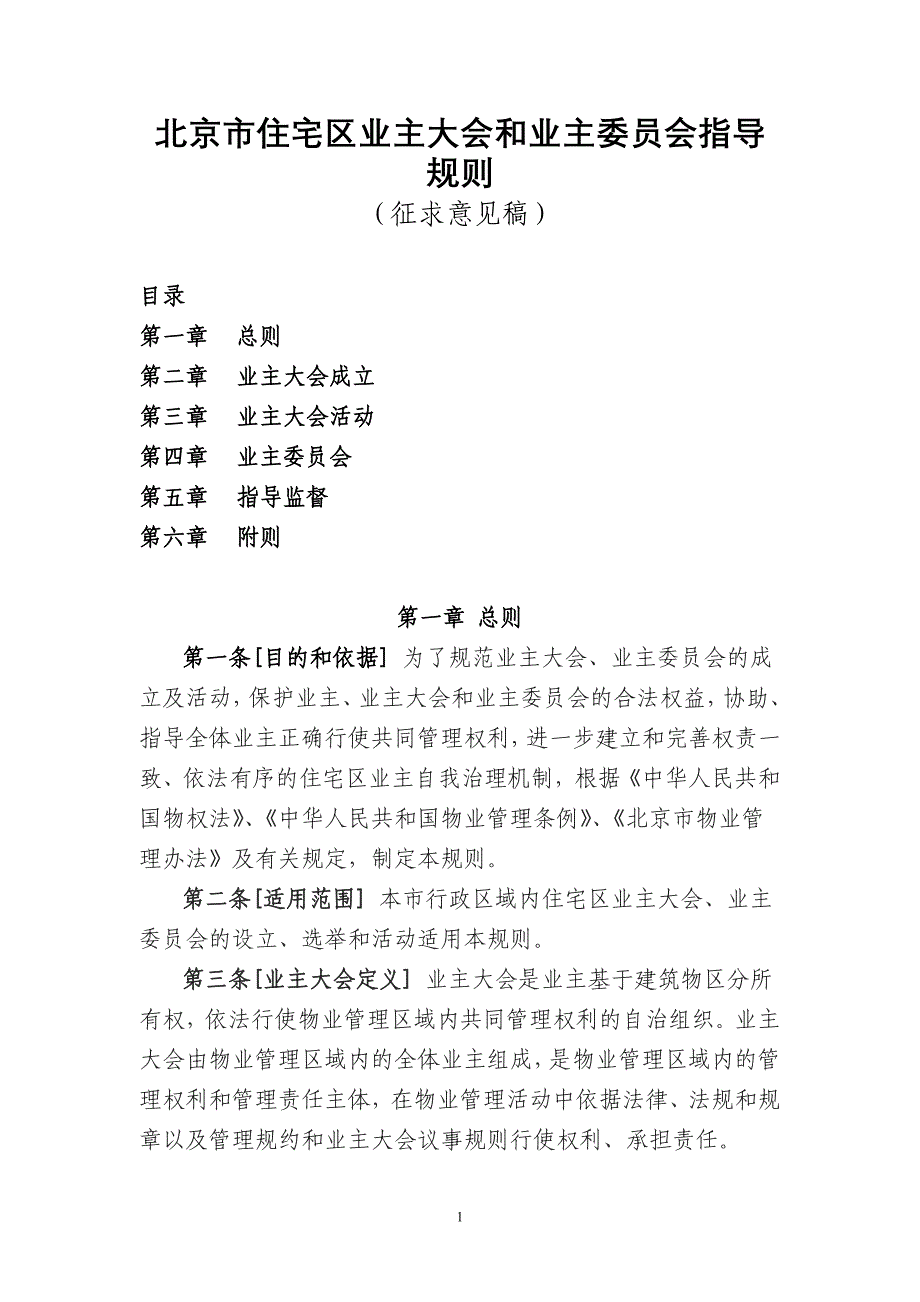 北京市住宅区业主大会和业主委员会指导
规则
（征求意见稿）
目录
第一章 总则
第二章 业主大会成立
第三章 业主大会活动
第四章 业主委员会
第五章 指导监督
第六章 附则
第一章 总则
第一条[目的和依据] 为了规范业主大会、业主委员会的成
立及活动，保护业主、业主大会和业主委员会的合法权益，协助、
指导全体业主正确行使共同管理权利，进一步建立和完善权责一
致、依法有序的住宅区业主自我治理机制，根据《中华人民共和
国物权法》、《中华人民共和国物业管理条例》、《北京市物业管
理办法》及有关规定，制定本规则。
第二条[适用范围] 本市行政区域内住宅区业主大会、业主
委员会的设立、选举和活动适用本规则。
第三条[业主大会定义] 业主大会是业主基于建筑物区分所
有权，依法行使物业管理区域内共同管理权利的自治组织。业主
大会由物业管理区域内的全体业主组成，是物业管理区域内的管
理权利和管理责任主体，在物业管理活动中依据法律、法规和规
章以及管理规约和业主大会议事规则行使权利、承担责任。
1